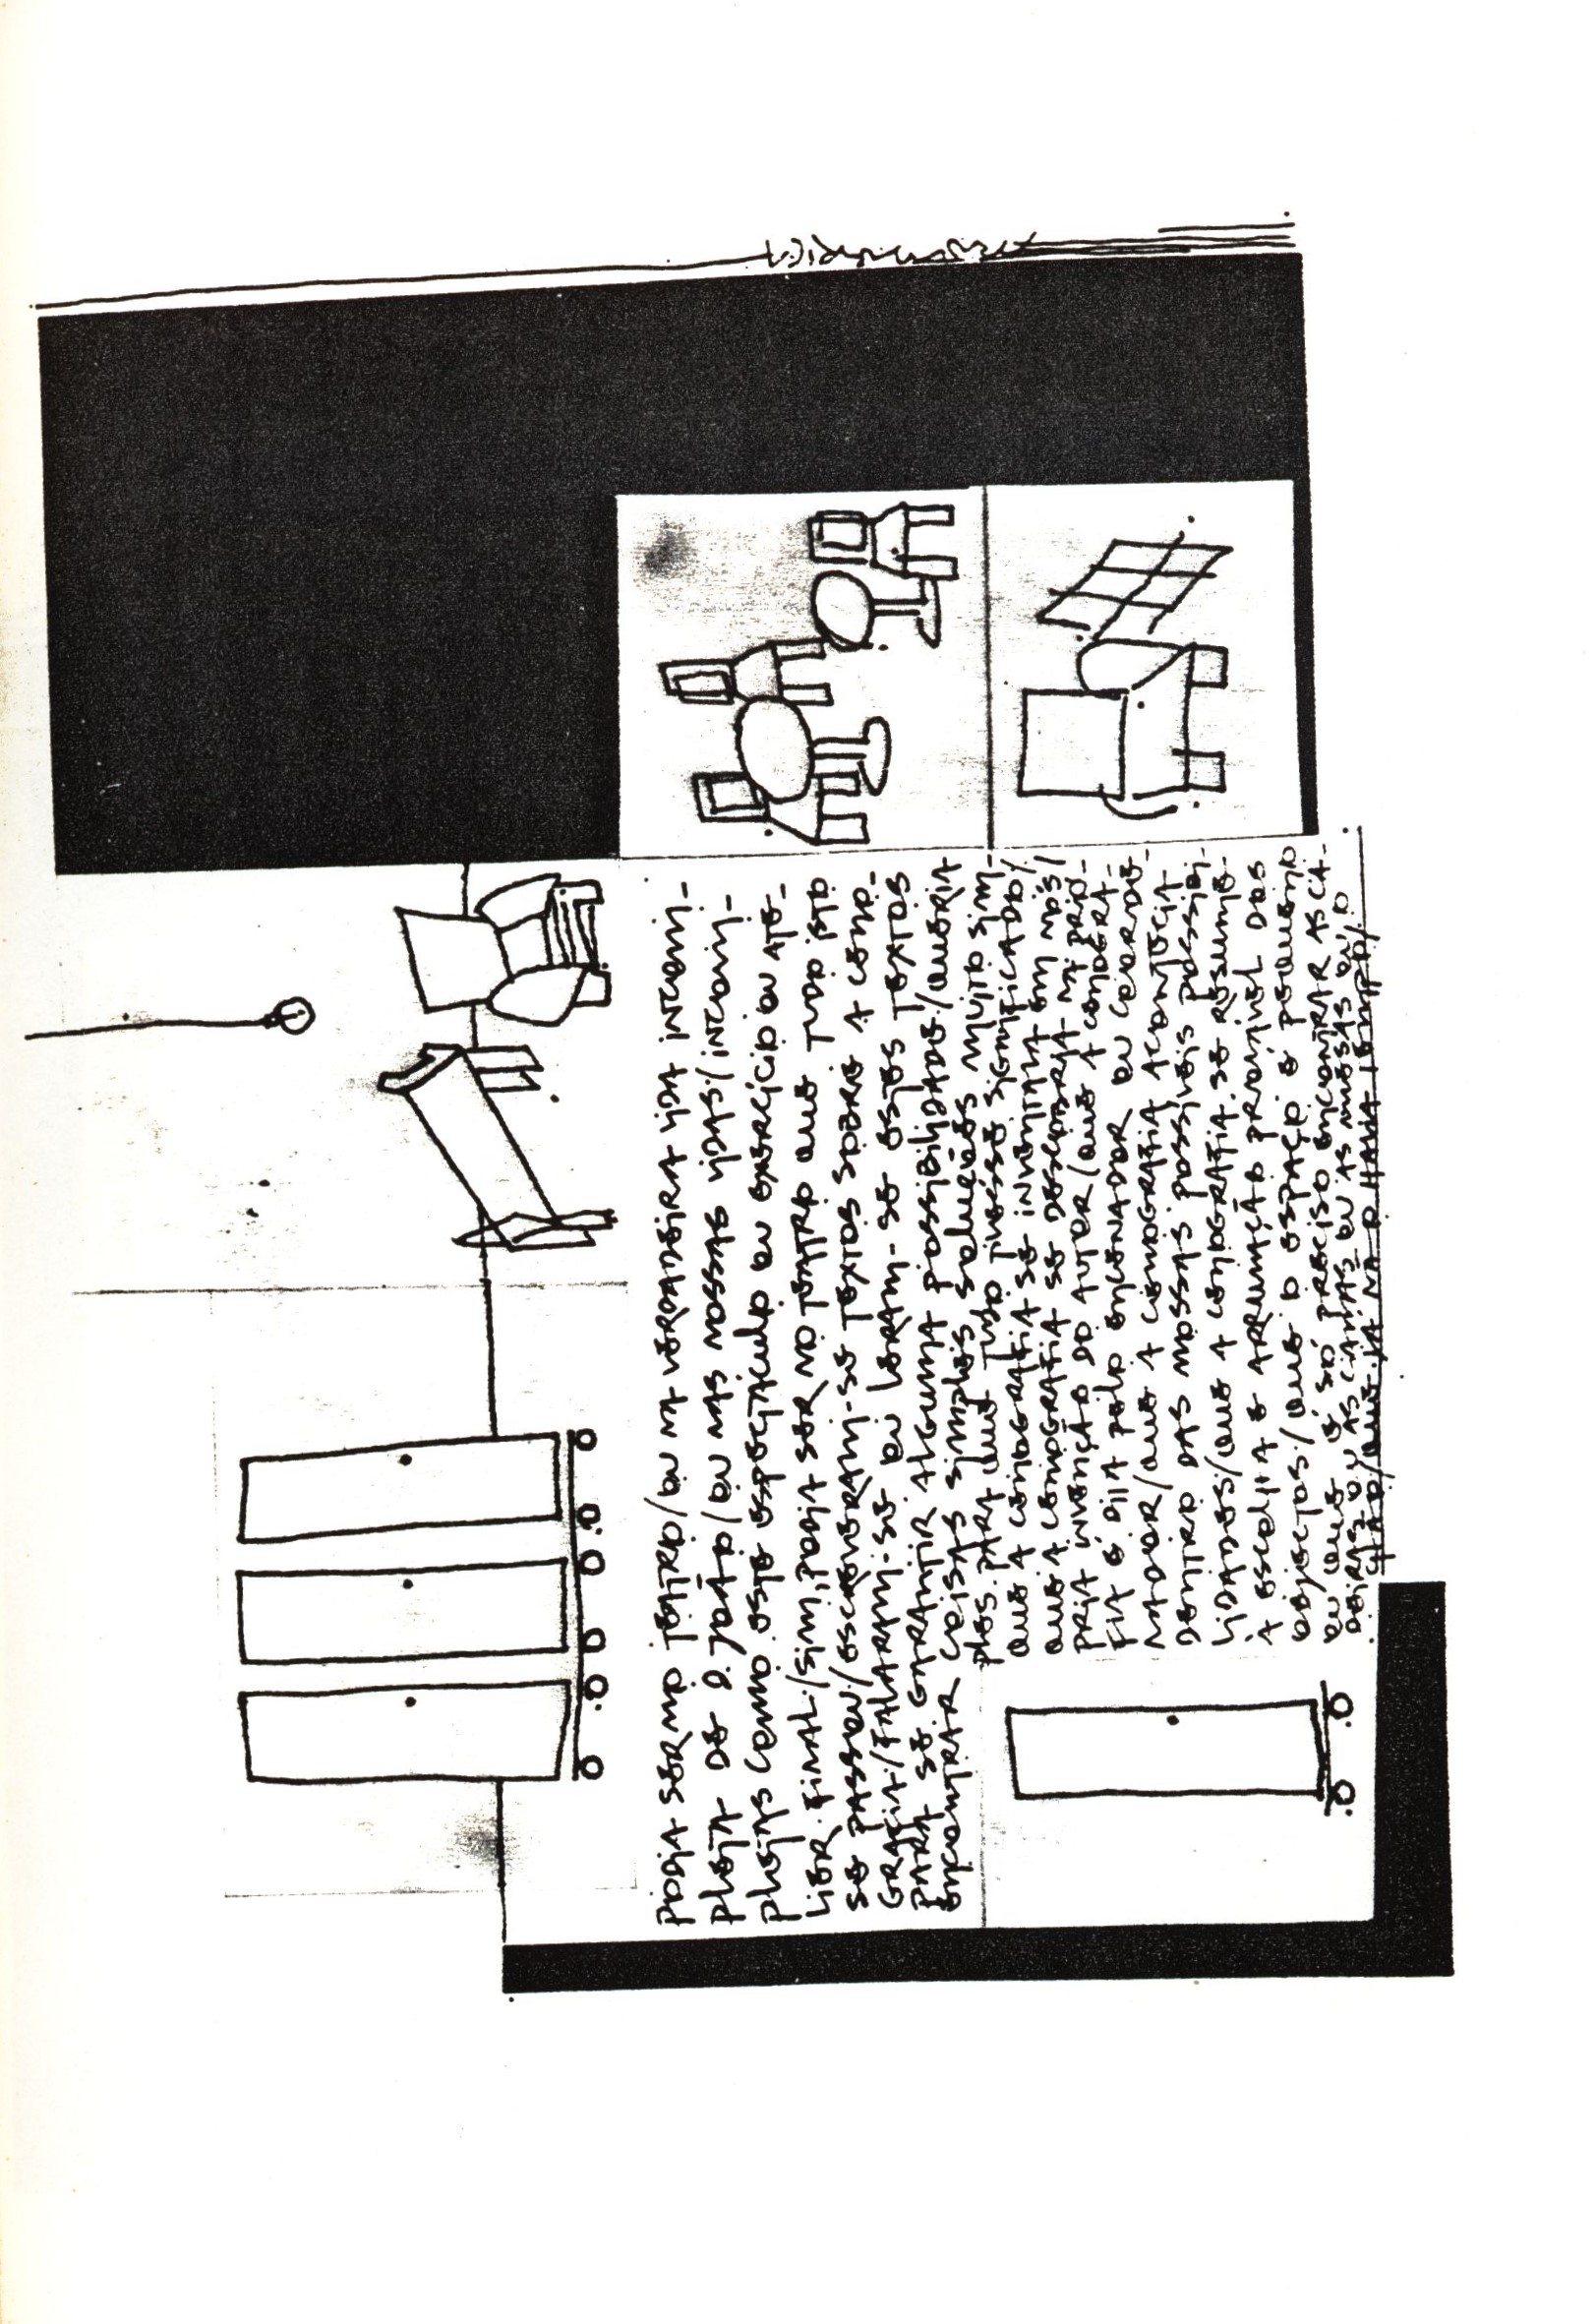 PODIA SER NO TEATRO/OU NA VERDADEIRA VIDA INCOM-
PLETA DE O. JARJO/OU NAS NOSSAS VIDAS/INCOM-
PLETAS COMO ESTE ESPECTÁCULO OU EXERCÍCIO OU ATE-
LIER FINAL./SIM, PODIA SER NO TEATRO QUE TUDO ISTO
SE PASSOU/ESCREVERAM-SE TEXTOS SOBRE A CENO-
GRAFIA/FALARAM-SE OU LERAM-SE ESTES TEXTOS
PARA SE GARANTIR ALGUMA POSSIBILIDADE/QUERIA
ENCONTRAR COISAS SIMPLES SOLUÇÕES MUITO SIM-
PLES PARA QUE TUDO TIVESSE SIGNIFICADO/
QUE A CENOGRAFIA SE INVENTAVA EM NÓS/
QUE A CENOGRAFIA SE DESCOBRIA NA PRÓ-
PRIA INVENÇÃO DO AUTOR/QUE A CENOGRA-
FIA É DITA PELO ENCENADOR OU COORDE-
NADOR/QUE A CENOGRAFIA ACONTECIA
DENTRO DAS NOSSAS POSSÍVEIS POSSIBI-
LIDADES/QUE A CENOGRAFIA SE RESUME
À ESCOLHA E ARRUMAÇÃO PROVÁVEL DOS
OBJECTOS/QUE O ESPAÇO É PEQUENO
OU QUE É SÓ PRECISO ENCONTRAR AS CA-
DEIRAS OU AS CAMAS OU AS MESAS OU O
CHÃO/QUE JÁ NÃO HAVIA TEMPO/